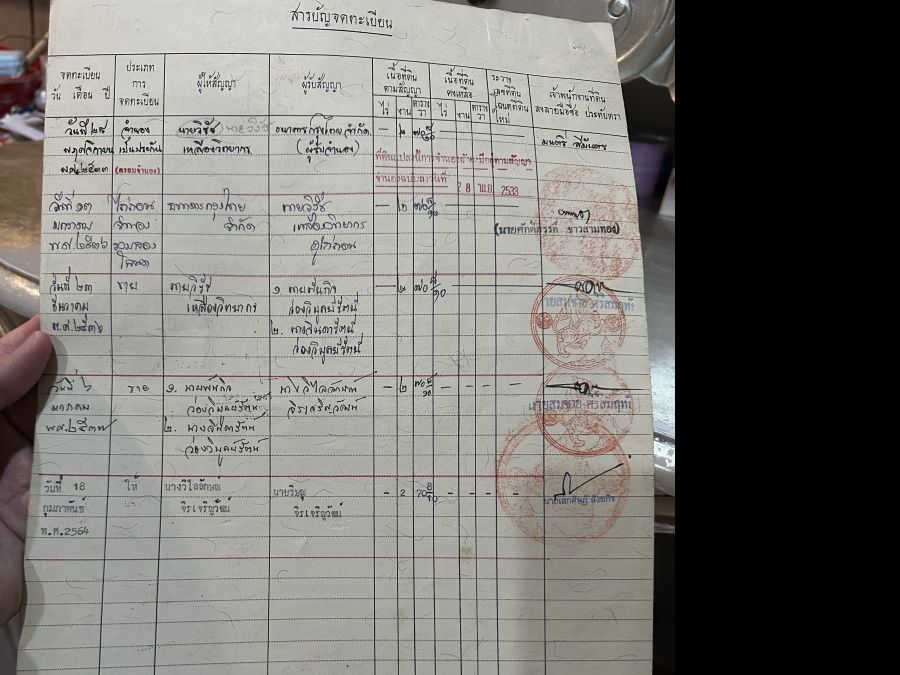 สารบัญจดทะเบียน
จดทะเบียน
วัน เดือน ปี
ประเภท
การ
จดทะเบียน
ผู้ให้สัญญา
ผู้รับสัญญา
เนื้อที่ดิน
ตามสัญญา
ไร่ งาน ตารางวา
เนื้อที่ดิน
คงเหลือ
ไร่ งาน ตารางวา
ระวาง
เลขที่ดิน
โฉนดที่ดิน
ใหม่
เจ้าพนักงานที่ดิน
ลงลายมือชื่อ ประทับตรา
วันที่ ๒๘ จำนอง นายวิรัช ธนาคารกรุงไทย จำกัด – ๒ ๗๐
พฤศจิกายน เป็นประกัน เหลืองวิทยากร (ผู้รับจำนอง)
พ.ศ. ๒๕๓๓ (ครอบจำนอง)
ที่ดินแปลงนี้การจำนองยังมีอยู่ตามสัญญา
จำนองฉบับลงวันที่ 28 พ.ย. 2533
วันที่ ๑๓ ไถ่ถอน ธนาคารกรุงไทย นายวิรัช – ๒ ๗๐
มกราคม จำนอง จำกัด เหลืองวิทยากร
พ.ศ. ๒๕๓๖ รวมสอง ผู้ไถ่ถอน
โฉนด
(นายศักดิ์สรรค์ ขาวสามทอง)
วันที่ ๒๓ ขาย นายวิรัช ๑ นายพันกิจ – ๒ ๗๐
ธันวาคม เหลืองวิทยากร ว่องวิบูลย์รัตน์
พ.ศ. ๒๕๓๖ ๒. นางจินดารัตน์
ว่องวิบูลย์รัตน์
นายสมชาย ศรีสมฤทธิ์
วันที่ ๖ ขาย ๑. นายพันกิจ นางวิไลลักษณ์ – ๒ ๗๐
มกราคม ว่องวิบูลย์รัตน์ จิรเจริญวัฒน์
พ.ศ. ๒๕๓๗ ๒. นางจินดารัตน์
ว่องวิบูลย์รัตน์
นายสมชาย ศรีสมฤทธิ์
วันที่ 18 ให้ นางวิไลลักษณ์ นายวิษณุ – 2 70 8/10 – – – –
กุมภาพันธ์ จิรเจริญวัฒน์ จิรเจริญวัฒน์
พ.ศ.2564